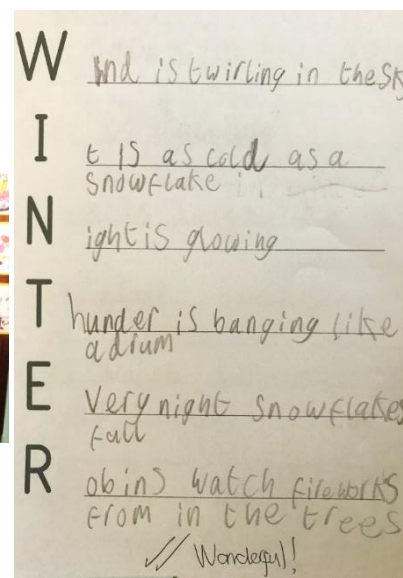 W ind is twirling in the sk
I t is as cold as a
snowflake in
N ight is glowing
T hunder is banging like
a drum
E very night snowflakes
fall
R obins watch fireworks
from in the trees
Wonderful!